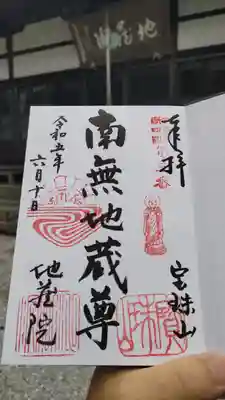 奉拝
宝珠山
南無地蔵尊
令和五年
六月十日
地蔵院